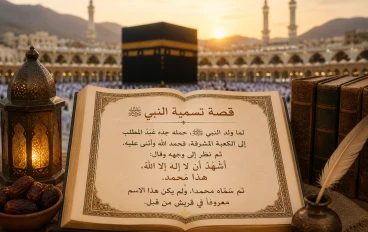 قصة تسمية النبي ﷺ
لما ولد النبي ﷺ، حمله جده عبد المطلب
إلى الكعبة المشرفة، فحمد الله وأثنى عليه،
ثم نظر إلى وجهه وقال:
أشهد أن لا إله إلا الله،
هذا محمد.
ثم سماه محمدا، ولم يكن هذا الاسم
معروفاً في قريش من قبل.